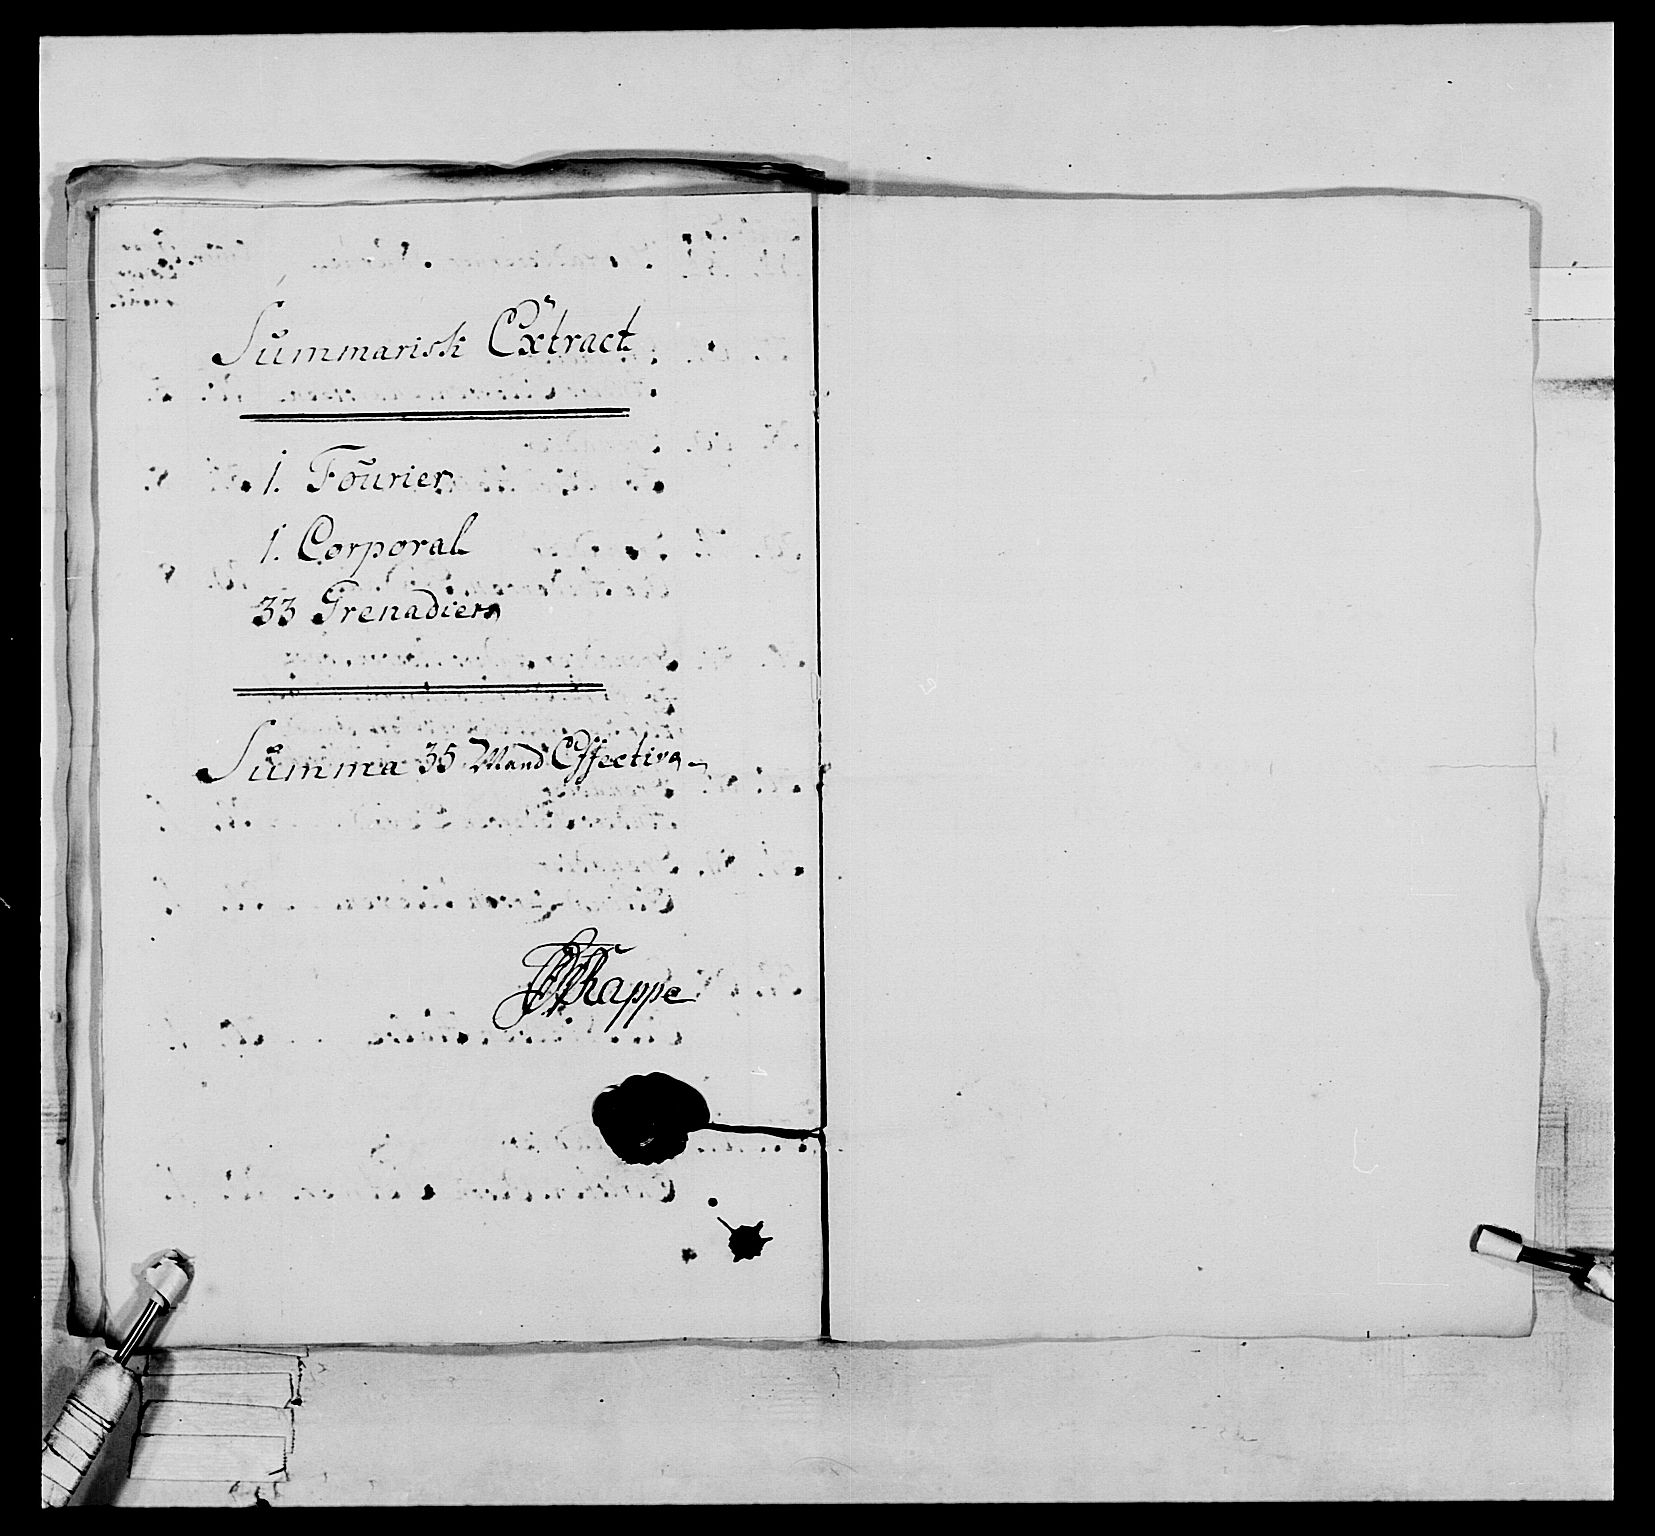 Summarisk Extract
1. Fourier
1. Corporal
33 Grenadierer
Summa 35 Mand Effective
Rappe